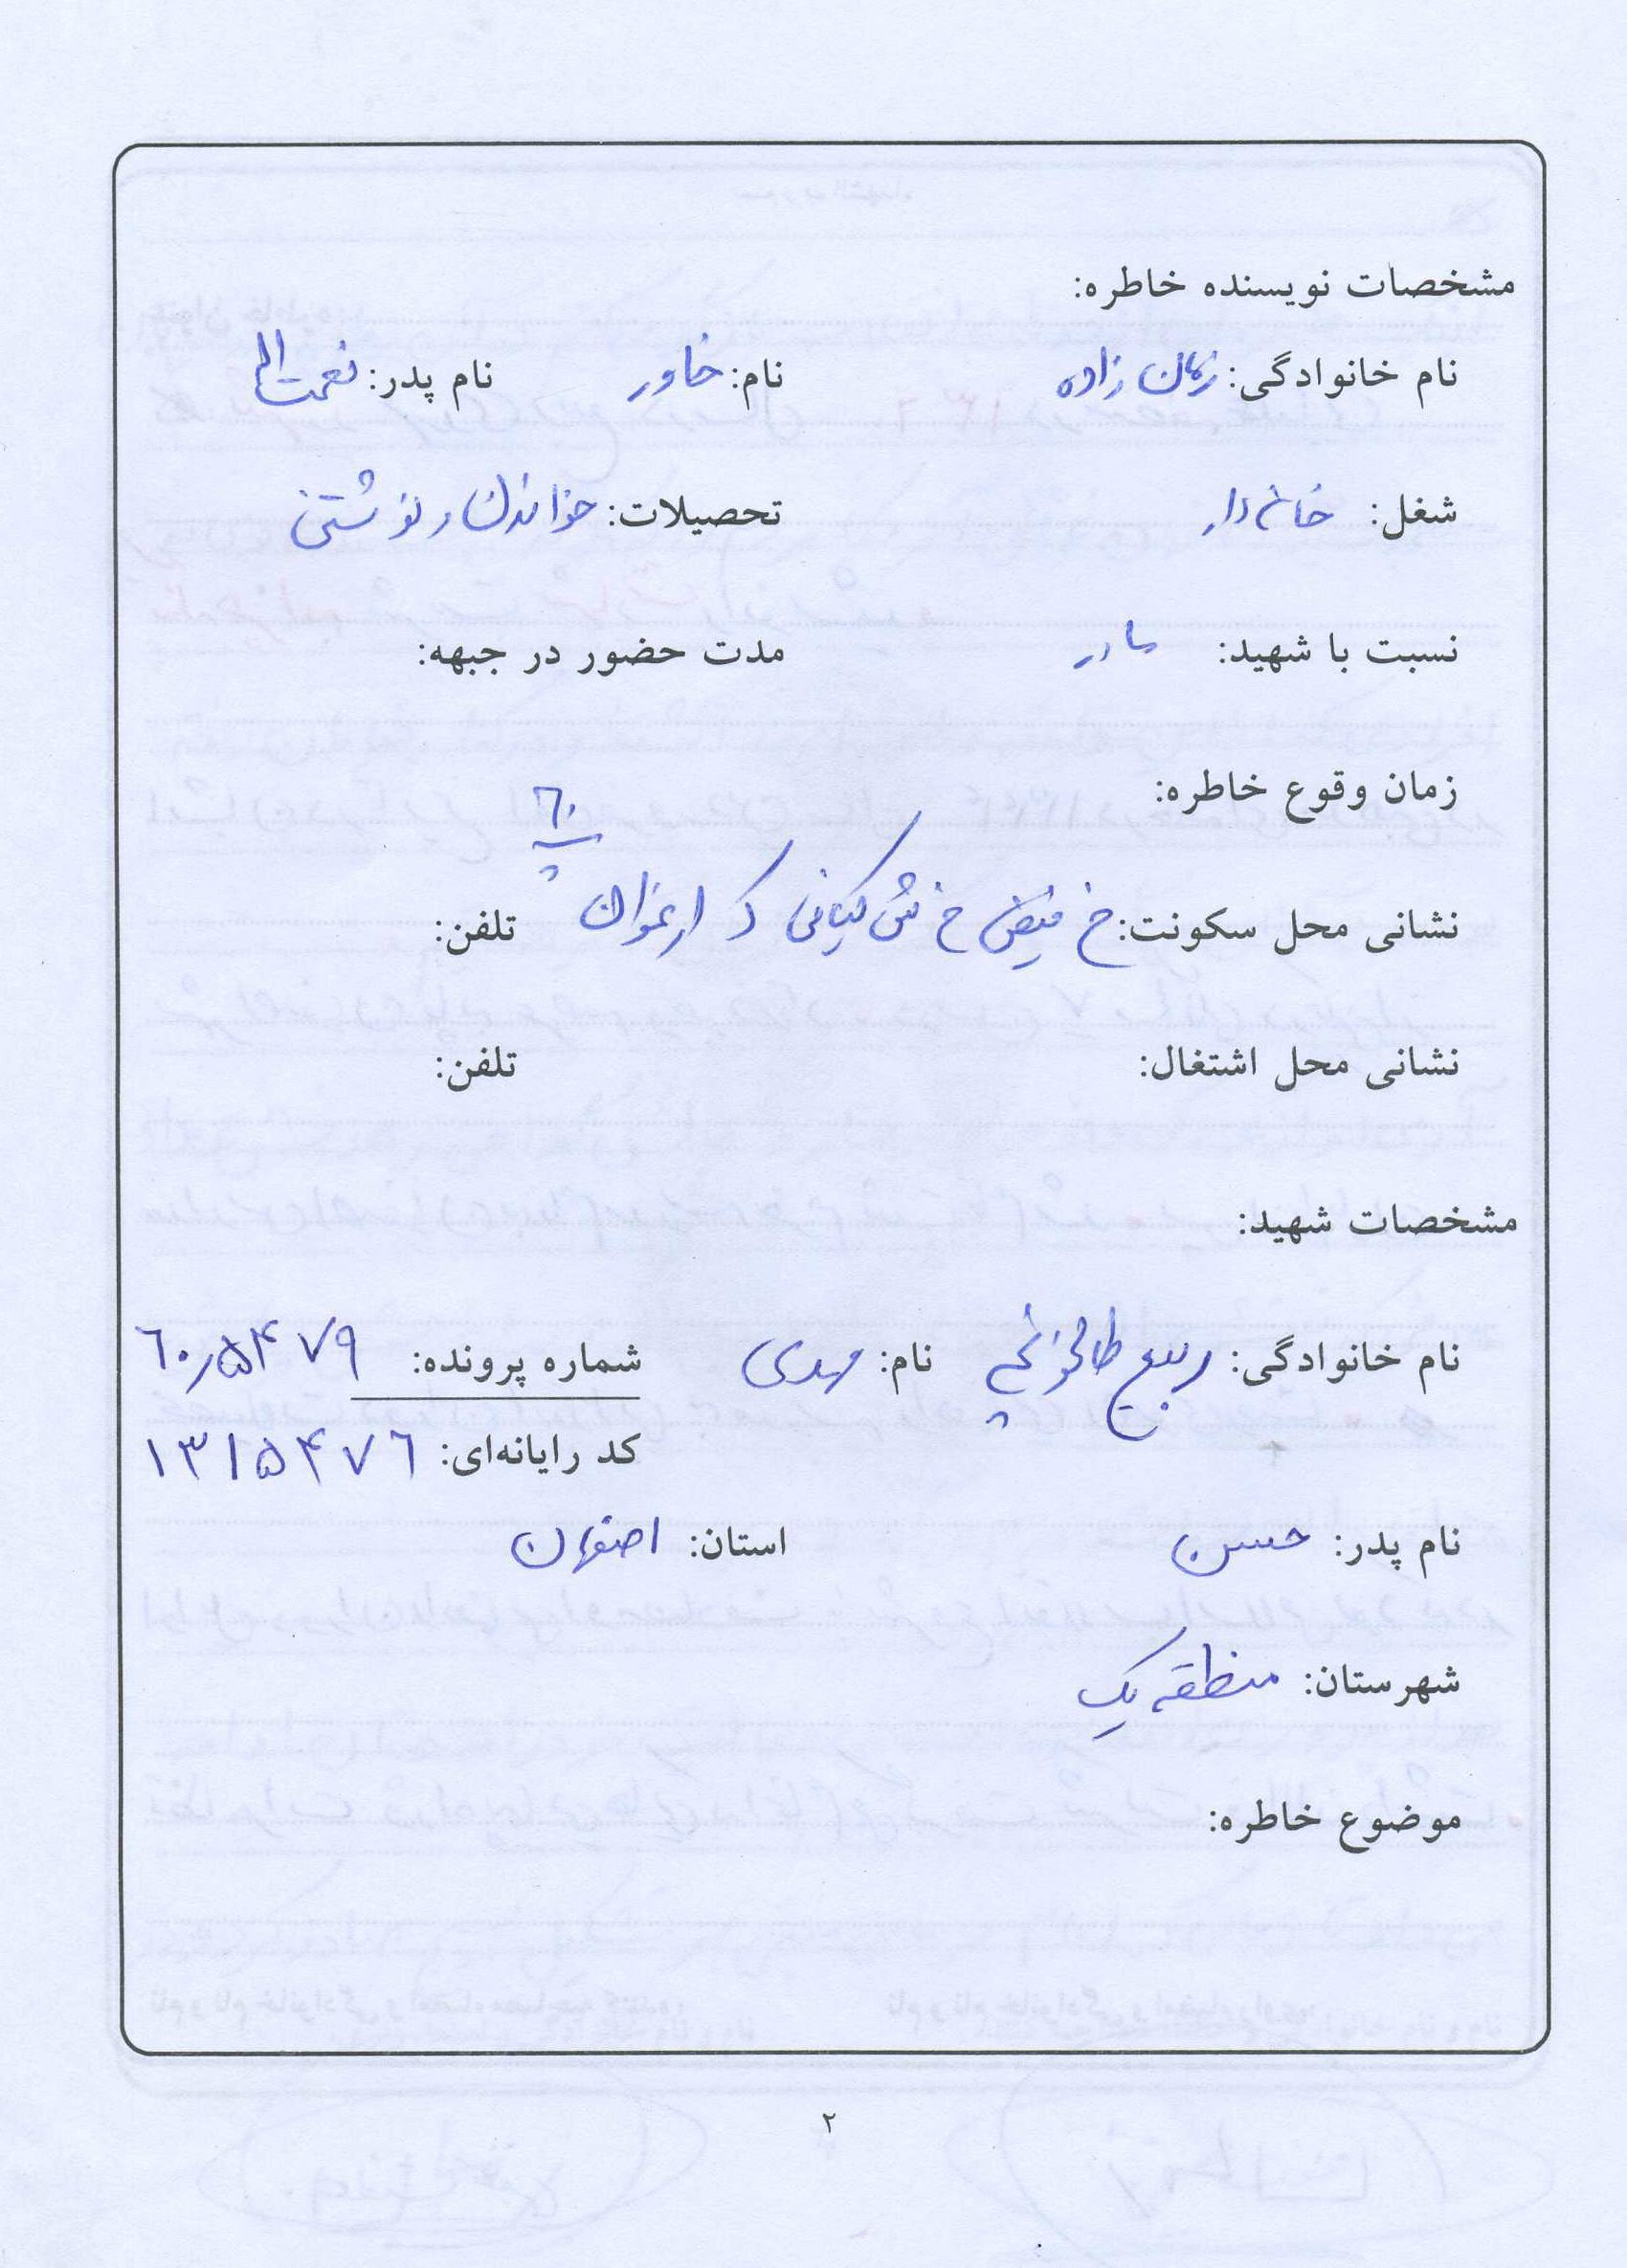 مشخصات نویسنده خاطره:
نام خانوادگی: زمان زاده نام: خاور نام پدر: نعمت اله
شغل: خانه دار تحصیلات: خواندن و نوشتن
نسبت با شهید: مادر مدت حضور در جبهه:
زمان وقوع خاطره:
نشانی محل سکونت: خ فیض خ ش کیانی ک ارغوان پ ٦٠ تلفن:
نشانی محل اشتغال: تلفن:
مشخصات شهید:
نام خانوادگی: ربیع طالخونچه نام: مهدی شماره پرونده: ٦٠/۵۴۷۹
کد رایانه‌ای: ۱۳۱۵۴۷٦
نام پدر: حسن استان: اصفهان
شهرستان: منطقه یک
موضوع خاطره:
۲